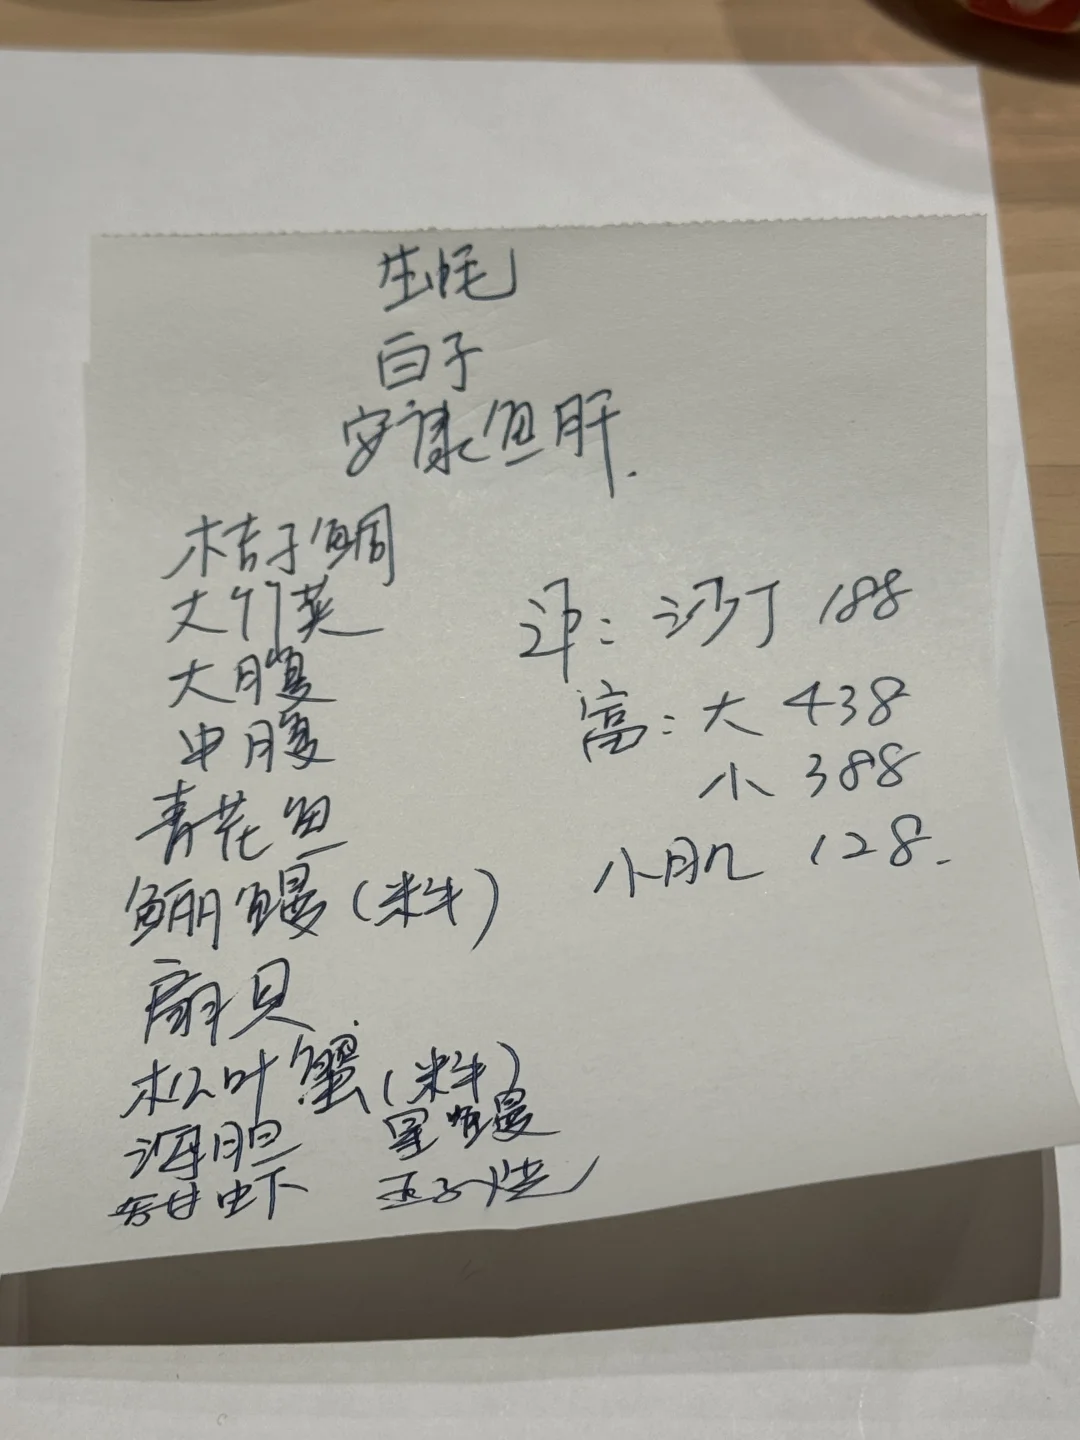 生蚝
白子
安康鱼肝.
桔子鲷
大竹荚
大腹
中腹
青花鱼
鲡鳗(料)
扇贝
松叶蟹(料)
海胆 星鳗
甜虾 玉子烧
沙丁 188
高: 大 438
小 388
小肌 128.